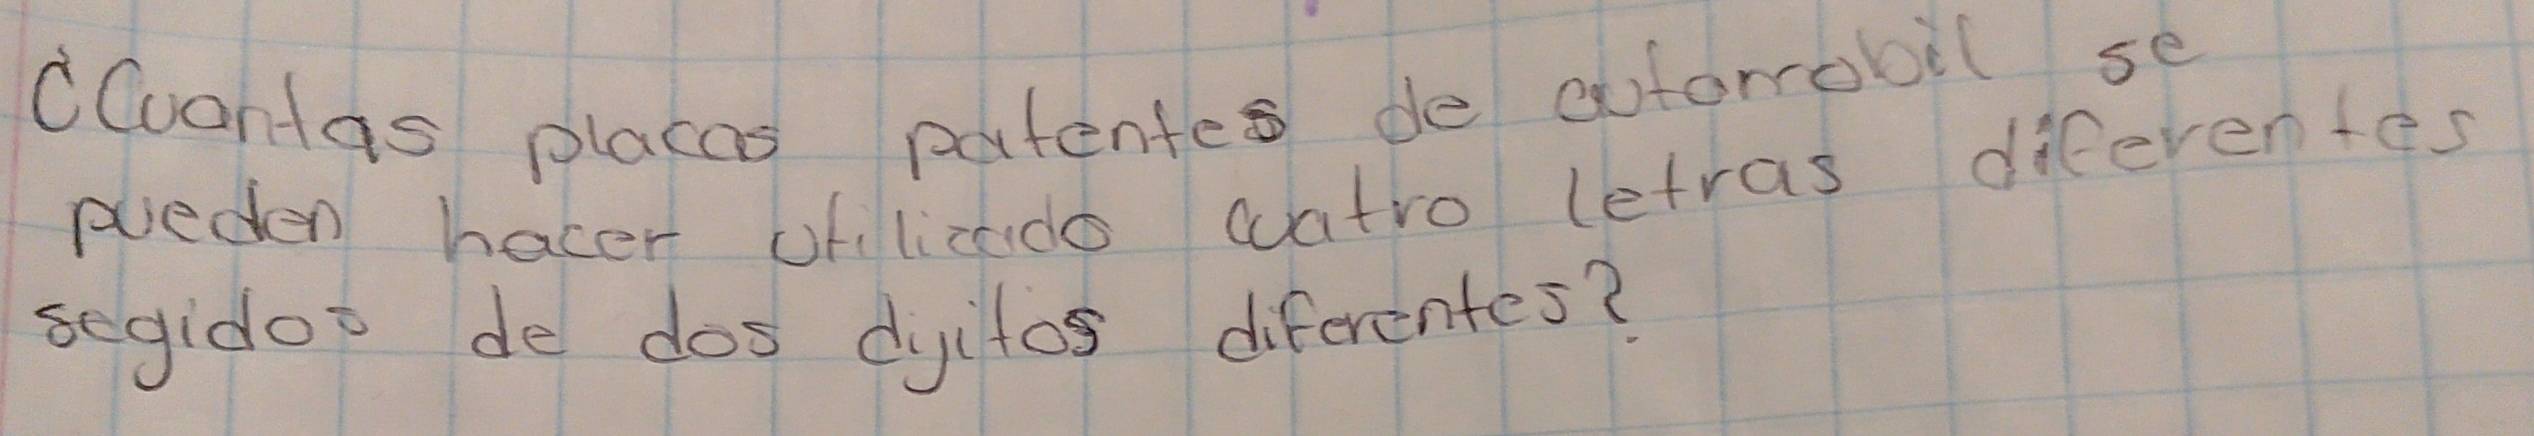 ¿Cuantas placas patentes de automobil se
pueden hacer utilizado cuatro letras diferentes
segidos de dos dijitos diferentes?